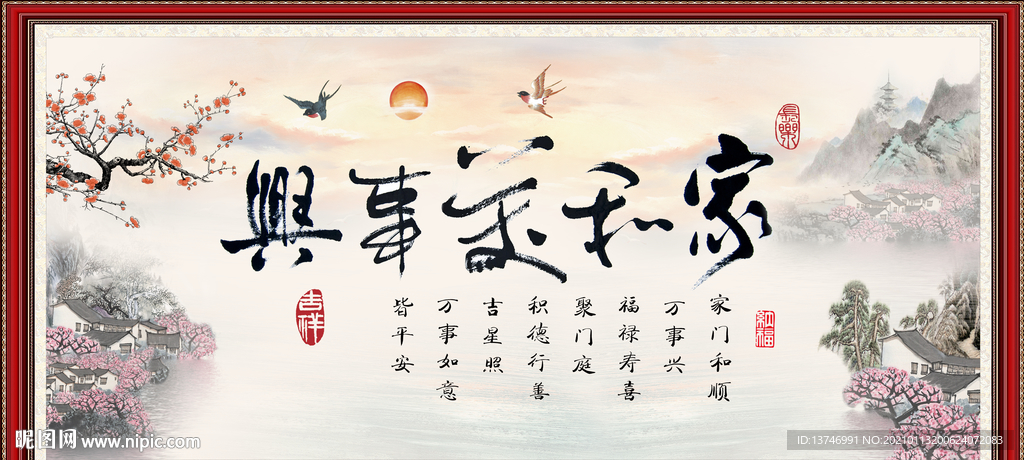 家和萬事興
長樂
家门和顺
万事兴
福禄寿喜
聚门庭
积德行善
吉星照
万事如意
皆平安
納福
吉祥
昵图网 www.nipic.com
ID:13746991 NO:20210113200624072083